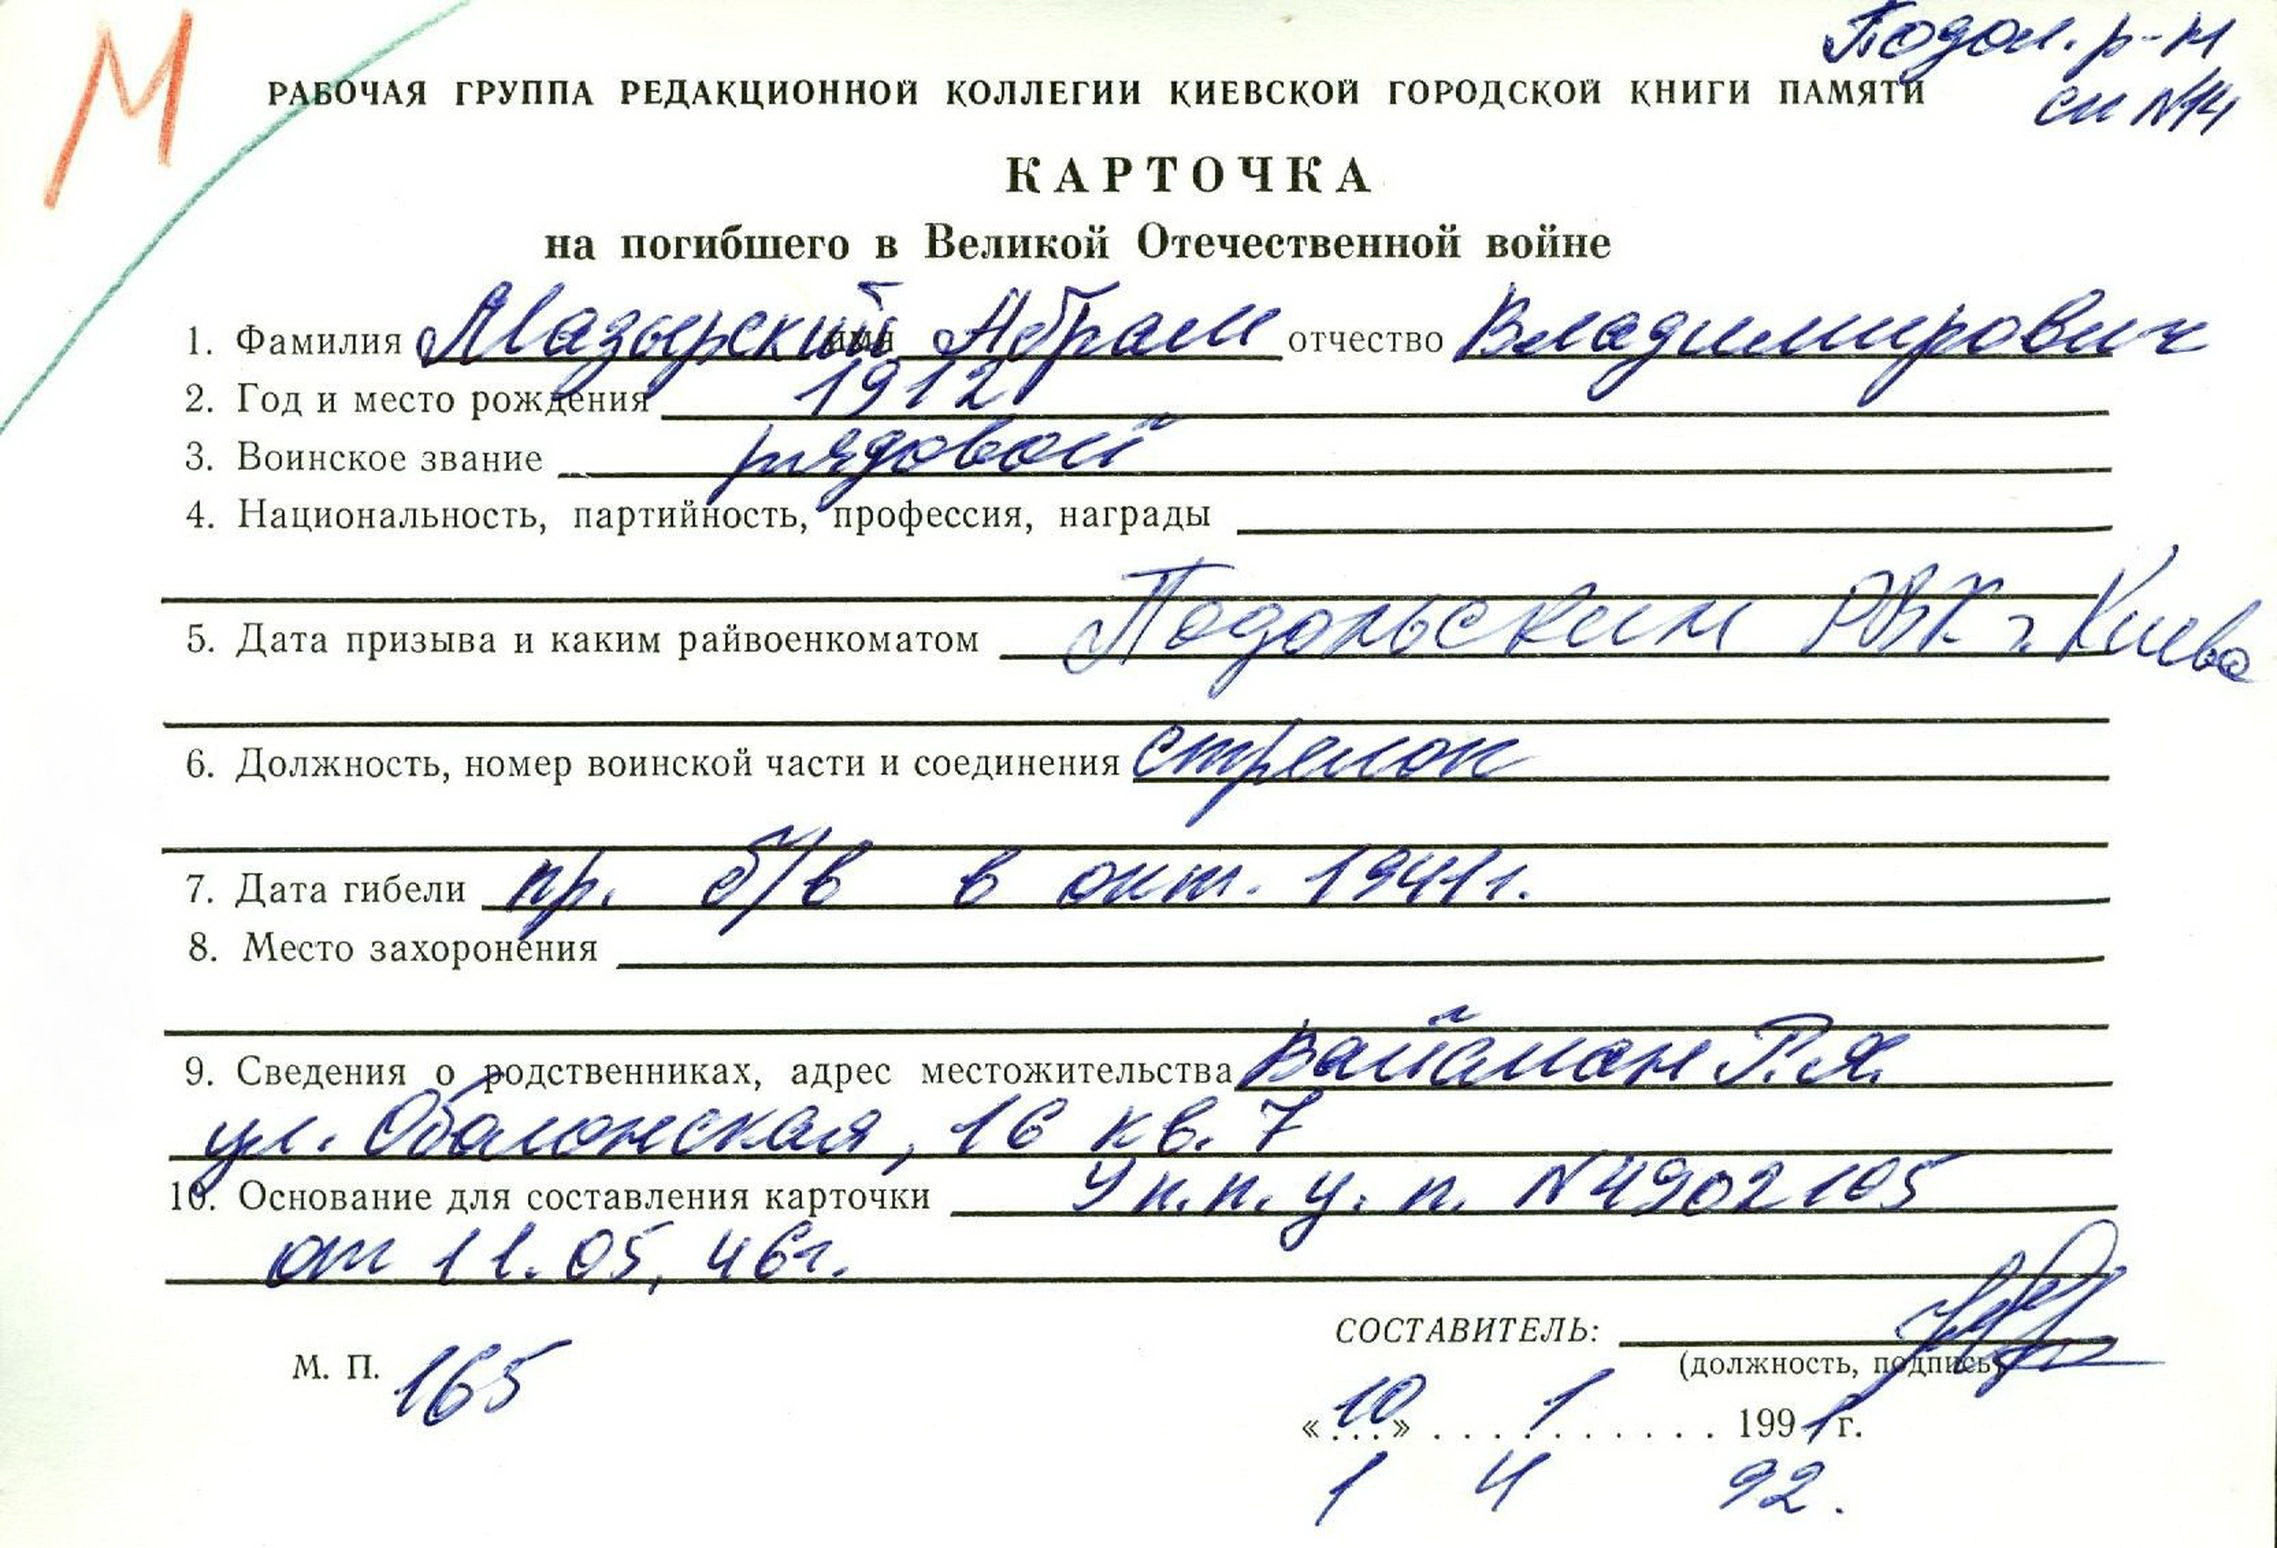 М
Подол. р-н
сп N14
РАБОЧАЯ ГРУППА РЕДАКЦИОННОЙ КОЛЛЕГИИ КИЕВСКОЙ ГОРОДСКОЙ КНИГИ ПАМЯТИ
КАРТОЧКА
на погибшего в Великой Отечественной войне
1. Фамилия Мазырский имя Абрам отчество Владимирович
2. Год и место рождения 1912
3. Воинское звание рядовой
4. Национальность, партийность, профессия, награды
5. Дата призыва и каким райвоенкоматом Подольским РВК г. Киева
6. Должность, номер воинской части и соединения стрелок
7. Дата гибели пр. б/в в окт. 1941г.
8. Место захоронения
9. Сведения о родственниках, адрес местожительства Вайсман Р.Я.
ул. Оболонская, 16 кв. 7
10. Основание для составления карточки У п.п. у. п. N4902105
от 11.05, 46г.
СОСТАВИТЕЛЬ:
М. П. 165
(должность, подпись)
« 10 » 1 1991 г.
1 4 92.